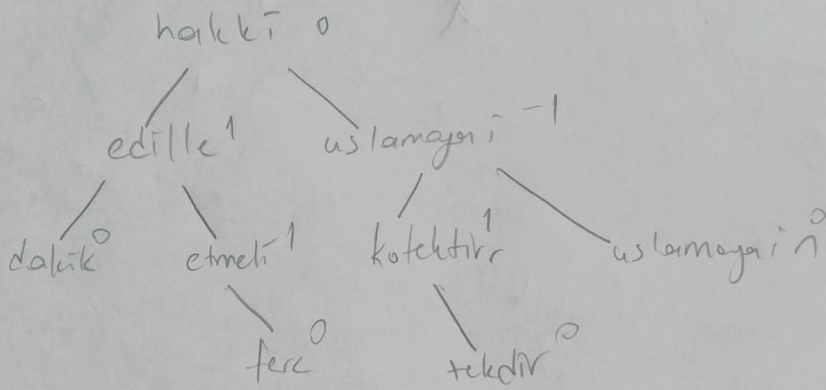 hakki 0
edille 1 uslamayni -1
dakik 0 etmeli 1 kotektirr 1 uslamayain 0
ferc 0 tekdir 0